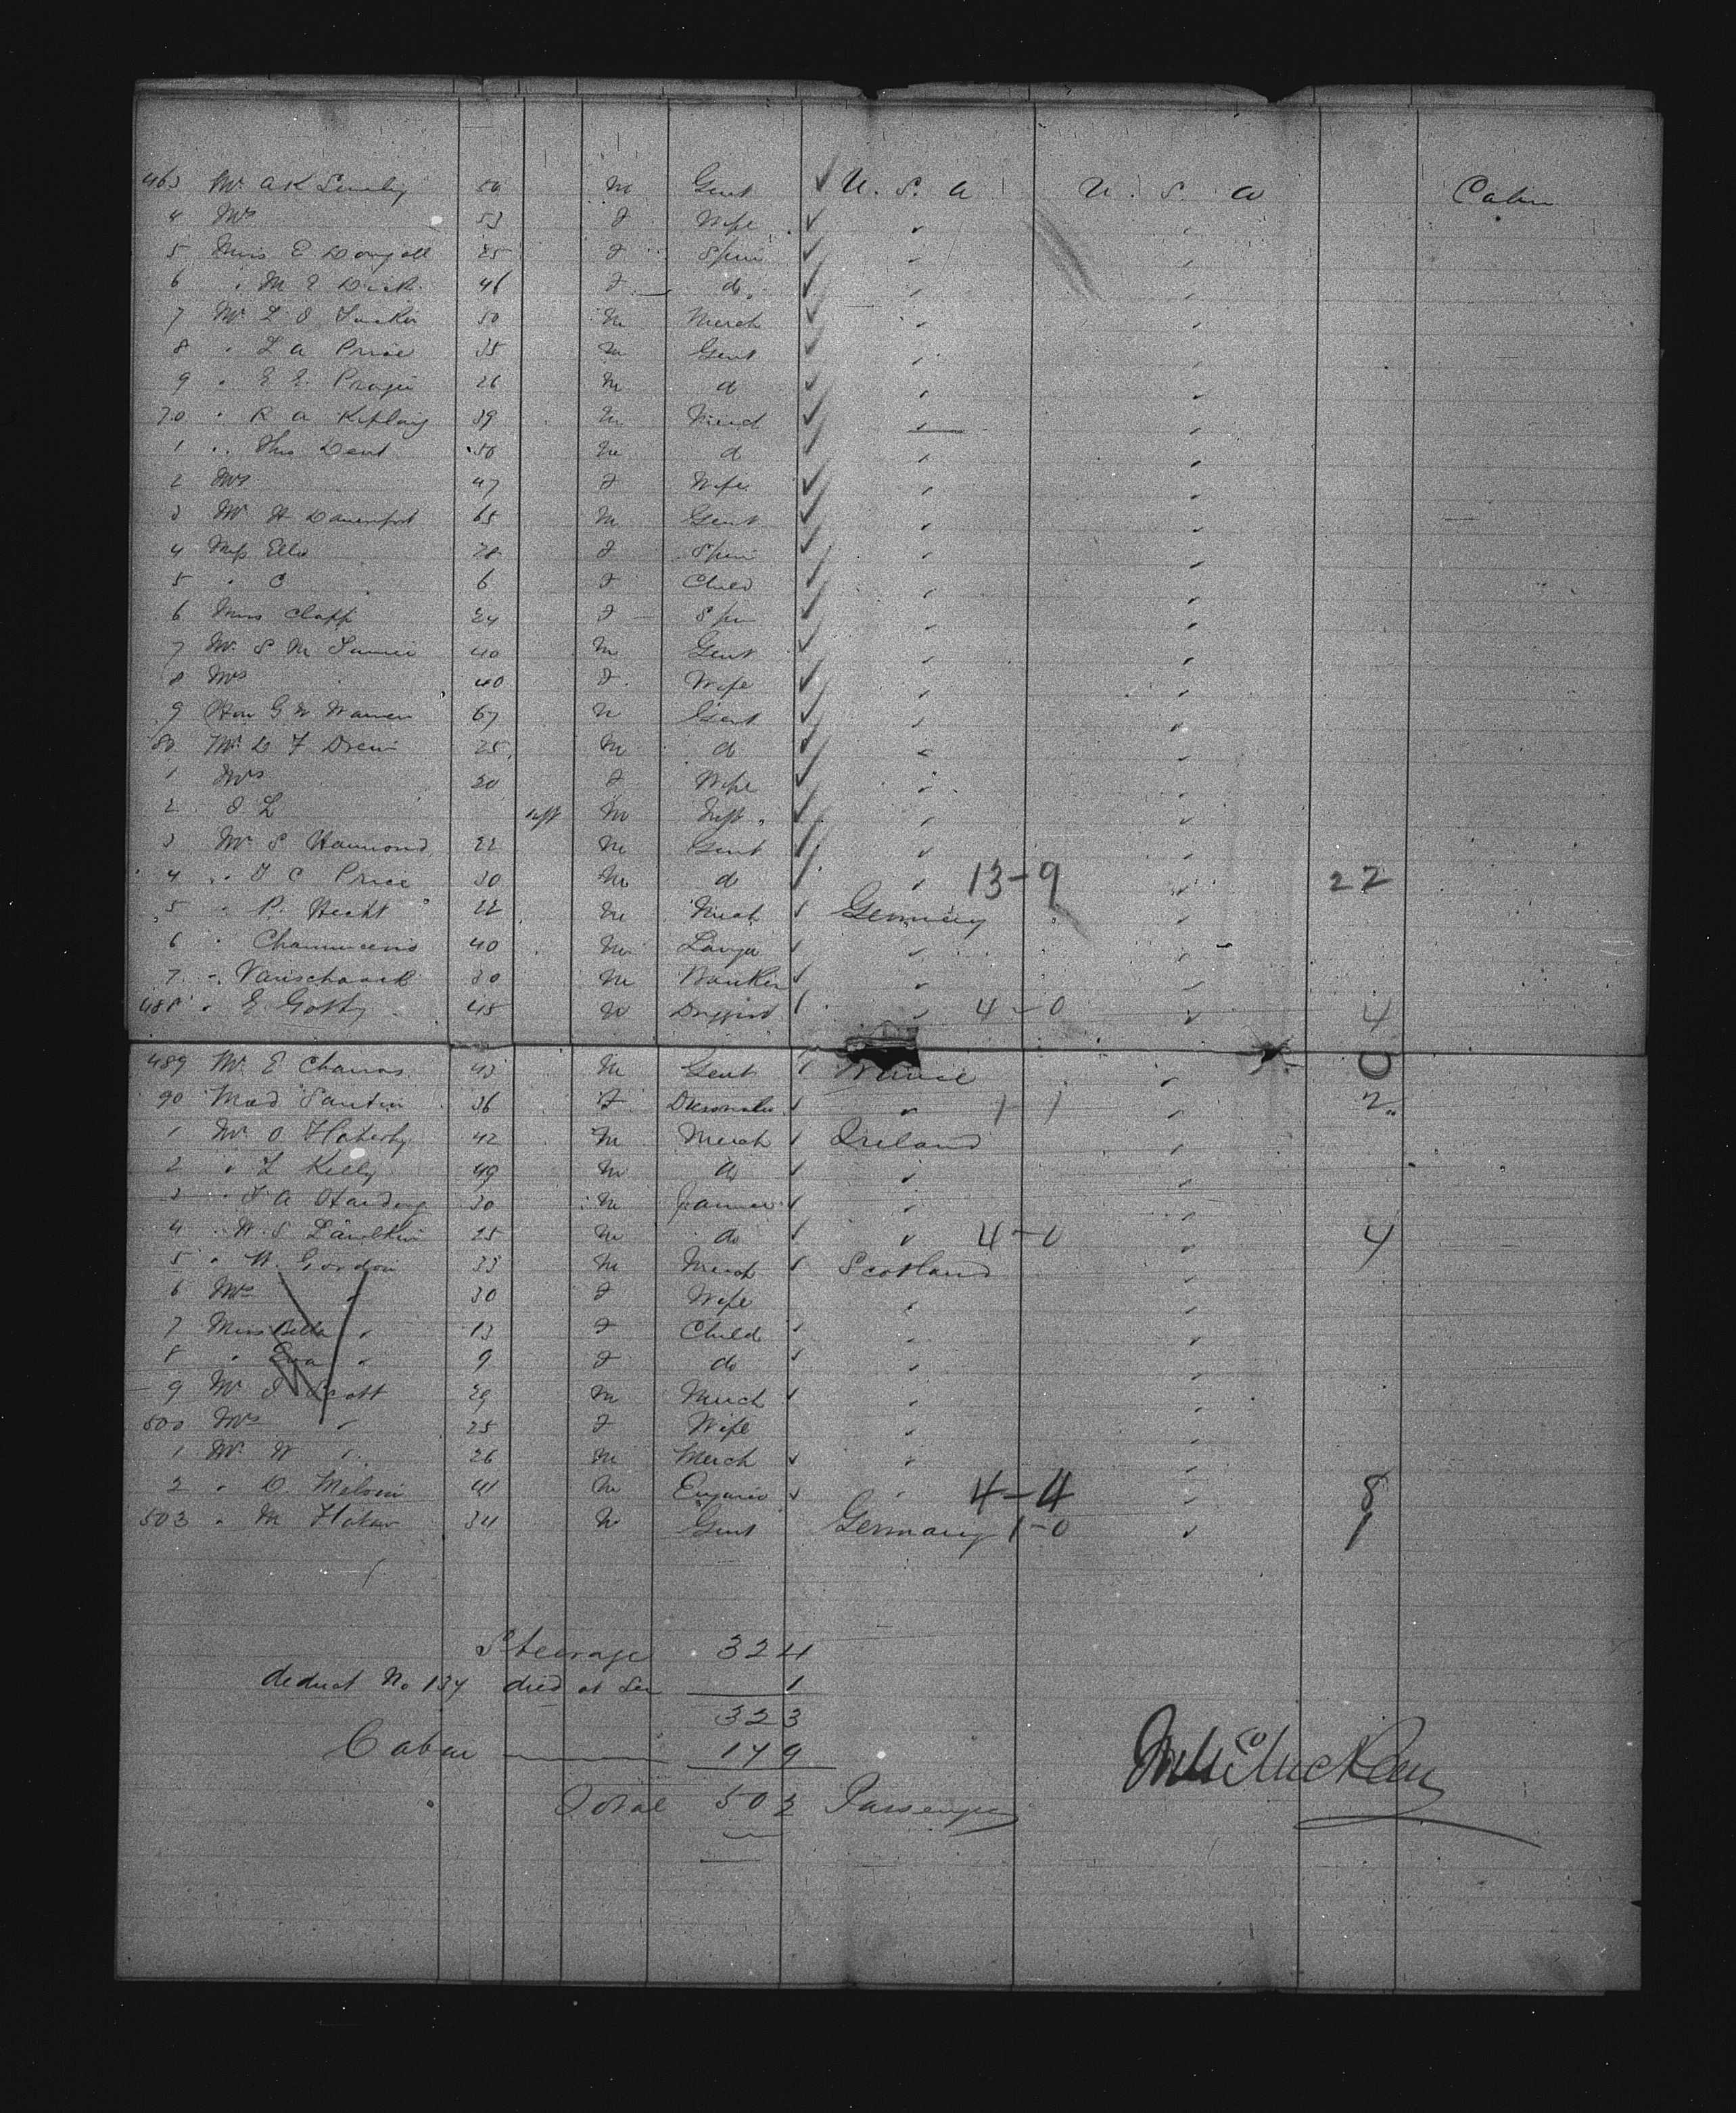 463 Mr A K 50 m Gent U. S. A U. S. A Cabin
4 Mrs 53 F Wife
5 Miss E Dougall 25 F Spin
6 " M E Dick 46 F do
7 Mr L 50 m Merch
8 " L A Price 35 m Gent
9 " E E Prager 26 m do
70 " R A Kipling 39 m Merch
1 " Thos Dent 50 m do
2 Mrs 47 F Wife
3 Mr H Davenport 65 m Gent
4 Miss Ella 28 F Spin
5 " C 6 F Child
6 Miss Clapp 24 F Spin
7 Mr S M 40 m Gent
8 Mrs 40 F Wife
9 Hon G W Warren 67 m Gent
80 Mr D F Drew 25 m do
1 Mrs 20 F Wife
2 J L inft m Inft
3 Mr S Hammond 22 m Gent
4 " J C Price 30 m do 13-9 22
5 " P. Hecht 22 m Merch Germany
6 " 40 m Lawyer
7 " 30 m Banker
488 " E Gotty 45 m Druggist 4-0 4
489 Mr E Charras 43 m Gent France
90 Mad Santin 36 F 1 1 2
1 Mr O 42 m Merch Ireland
2 " L Kelly 49 m do
3 " J A Harding 30 m Farmer
4 " W. S. 25 m do 4-0 4
5 " W. Gordon 33 m Merch Scotland
6 Mrs " 30 F Wife
7 Miss Bella " 13 F Child
8 " Eva " 9 F do
9 Mr J Scott 29 m Merch
500 Mrs " 25 F Wife
1 Mr W " 26 m Merch
2 " D Melvin 41 m 4-4 8
503 " M 34 m Gent Germany 1-0 1
Steerage 324
deduct No 134 died at Sea 1
323
Cabin 179
Total 502 Passengers